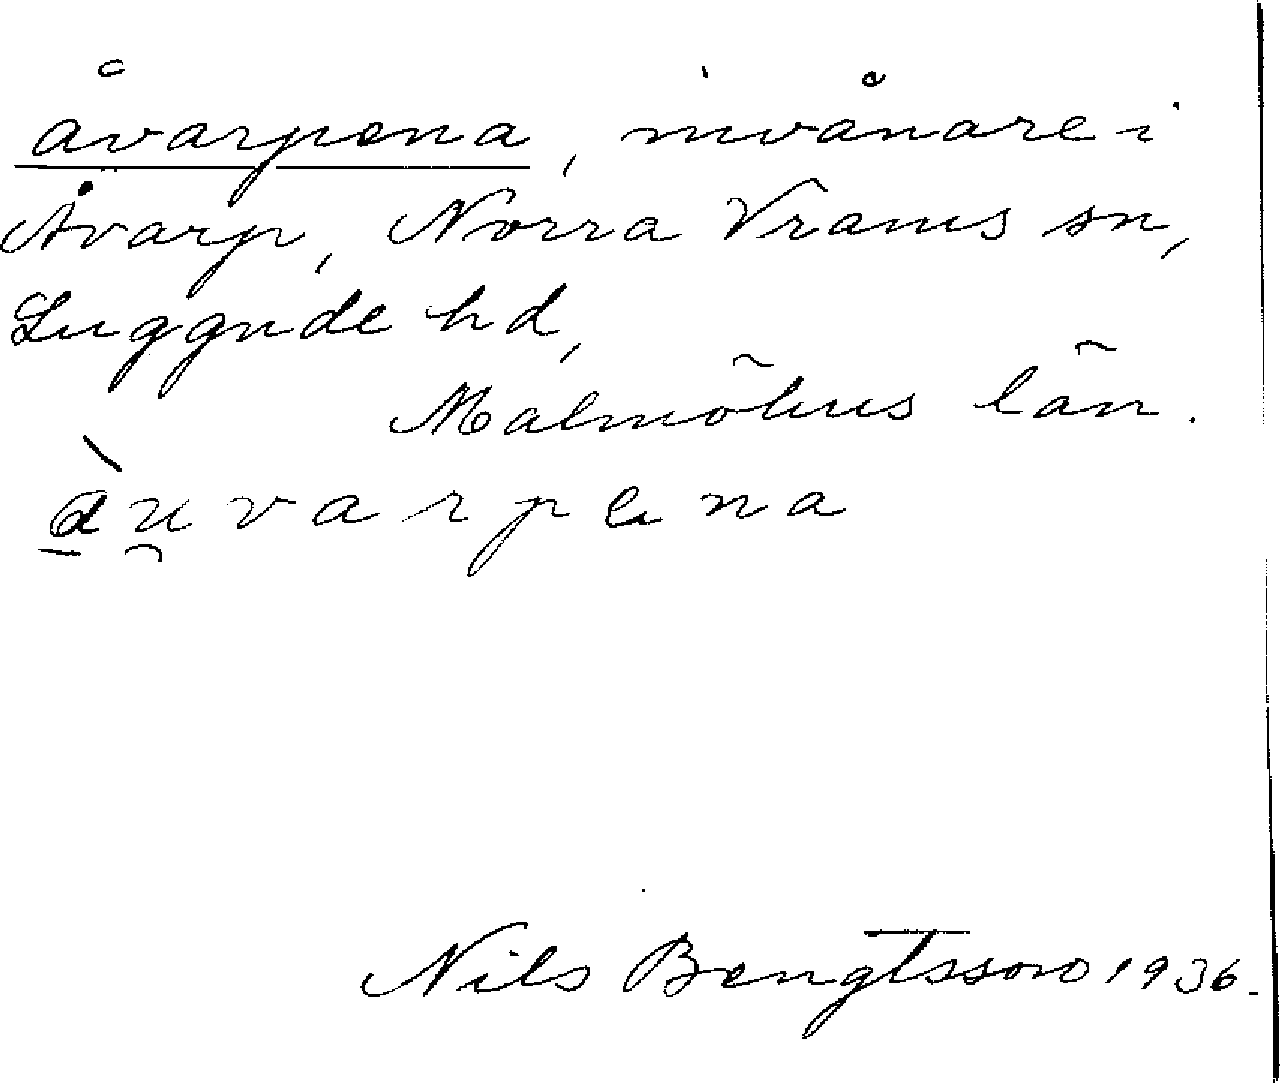 åvarpena, invånare i
Åvarp, Norra Vrams sn,
Luggude hd,
Malmöhus län.
à̱u̯varpena
Nils Bengtsson 1936.